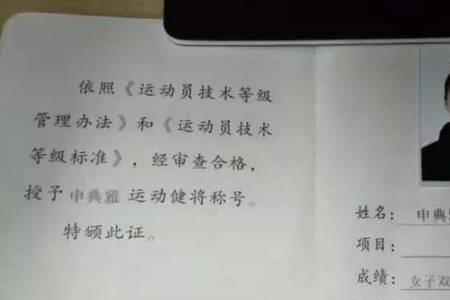 依照《运动员技术等级
管理办法》和《运动员技术
等级标准》，经审查合格，
授予 申典雅 运动健将称号。
特颁此证。
姓名：申典雅
项目：
成绩：女子双